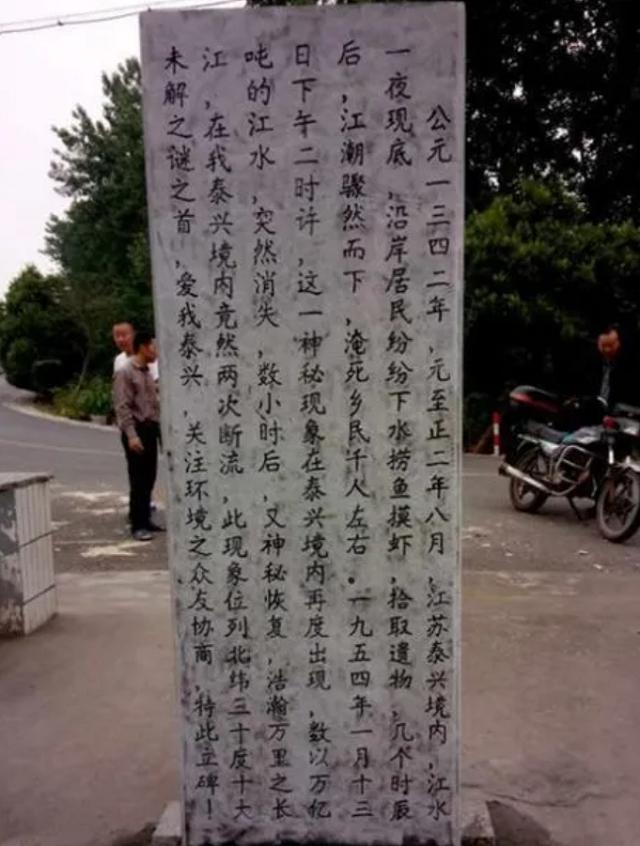 公元一三四二年，元至正二年八月，江苏泰兴境内，江水
一夜现底，沿岸居民纷纷下水捞鱼摸虾，拾取遗物，几个时辰
后，江潮骤然而下，淹死乡民千人左右。一九五四年一月十三
日下午二时许，这一神秘现象在泰兴境内再度出现，数以万亿
吨的江水，突然消失，数小时后，又神秘恢复，浩瀚万里之长
江，在我泰兴境内竟然两次断流，此现象位列北纬三十度十大
未解之谜之首，爱我泰兴，关注环境之众友协商，特此立碑！